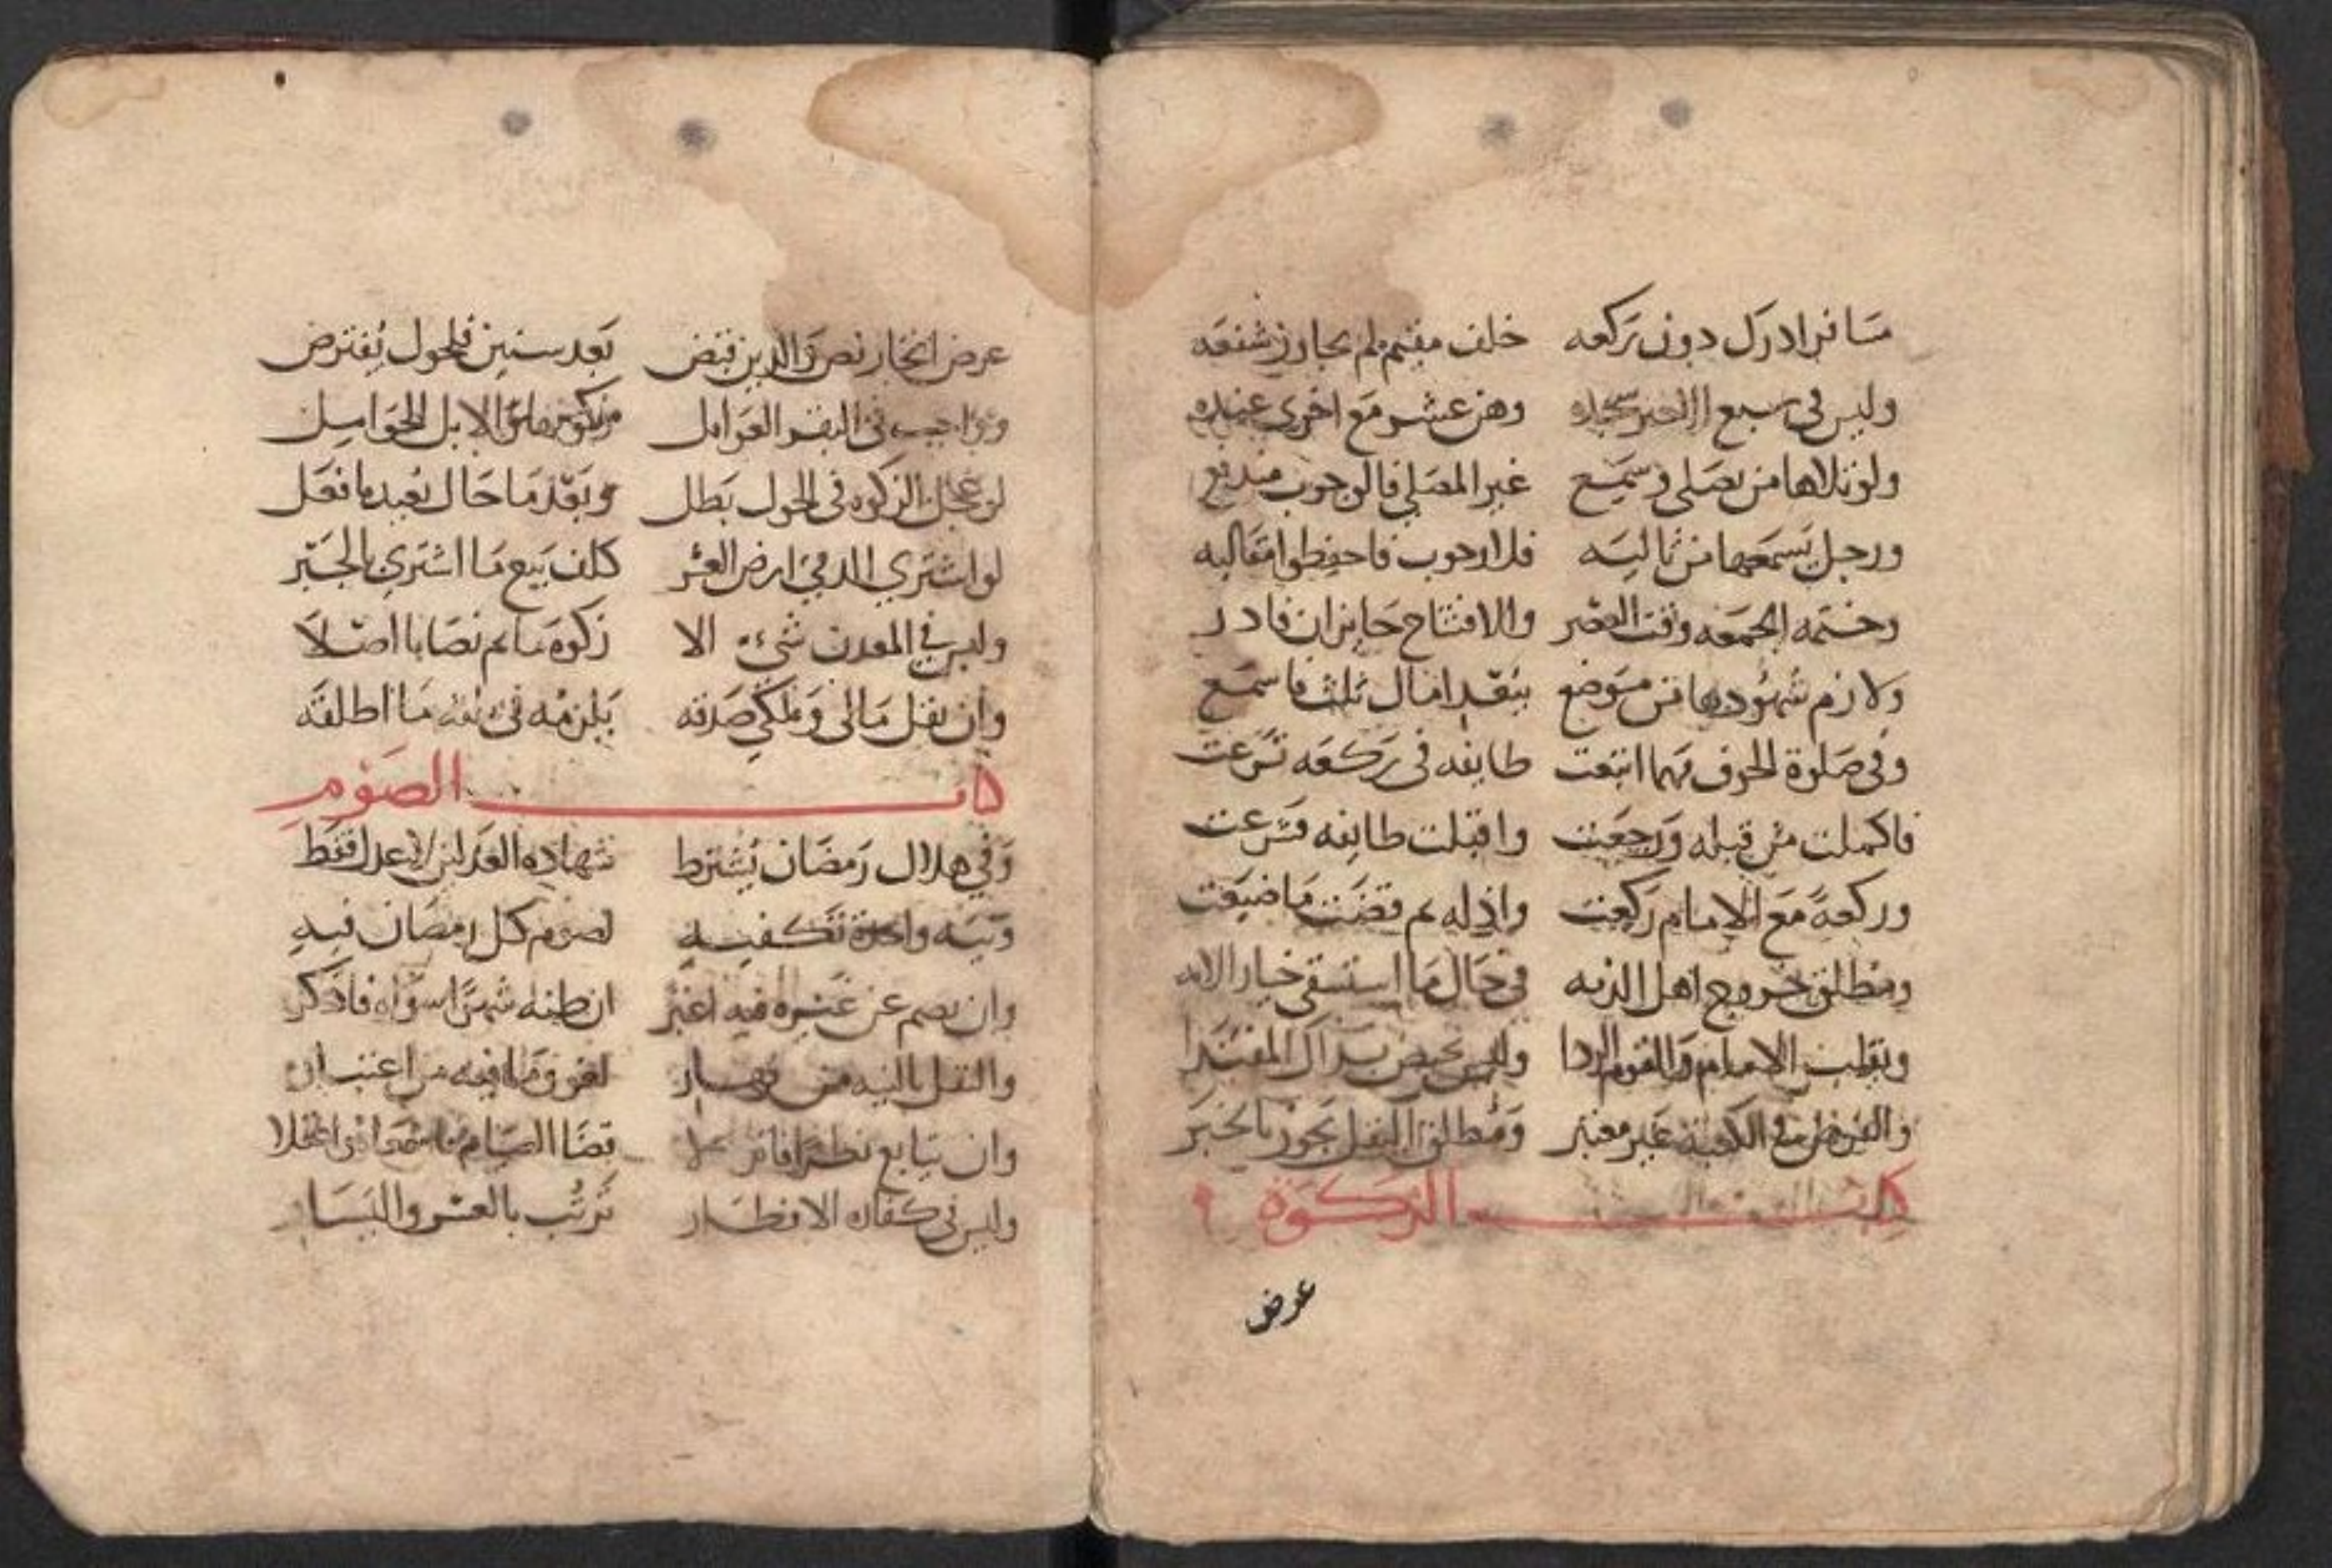 مسافر ادرك دون ركعه خلف مقيم لم يجاوز شفعه
وليس في سبع الاخير سجده وهن عشر مع اخرى عنده
ولو تلاها من يصلي وسمع غير المصلي فالوجوب مندفع
ورجل يسمعها من تاليه فلا وجوب فاحفظوا مقاليه
وختمه الجمعه وقت العصر والافتتاح جايز ان قادر
ولازم شهودها من موضع بنقد اميال ثلث فاسمع
وفي صلوة الخوف مهما اتبعت طايفه في ركعه تسرعت
فاكملت من قبله ورجعت واقبلت طايفه فشرعت
وركعة مع الامام ركعت واذ له تم قضت ما ضيعت
ومطلق خروج اهل الذمه في حال ما استسقى خيار الامه
وتقلب الامام والقوم الردا وليس يختص بذاك المقتدا
والفرض في الكعبة غير معتبر ومطلق النفل يجوز بالخبر
كتاب الزكوة
عرض
عرض اتجار نص والدين قبض بعد سنين فلحول يفترض
وواجب في البقر العوامل زكوتها وفي الابل الحوامل
لو عجل الزكوه في الحول بطل وبعد ما حال يعيد ما فعل
لو اشترى الذمي ارض العشر كلف بيع ما اشترى بالجبر
وليس في المعدن شيء الا زكوة ما تم نصابا اصلا
وان يقل مالي وملكي صدقه يلزمه في ثلثه ما اطلقه
كتاب الصوم
وفي هلال رمضان يشترط شهاده العدلين لا عدل فقط
ونيه واحدة تكفيه لصوم كل رمضان فيه
وان يصم عن غيره فيه اعتبر ان ظنه شهرا سواه فاذكر
والنفل بالنيه من نهار لغو وما فيه من اعتبار
وان يتابع نظرا فانزلا قضا الصيام
وليس في كفاره الافطار ترتب بالعسر واليسار